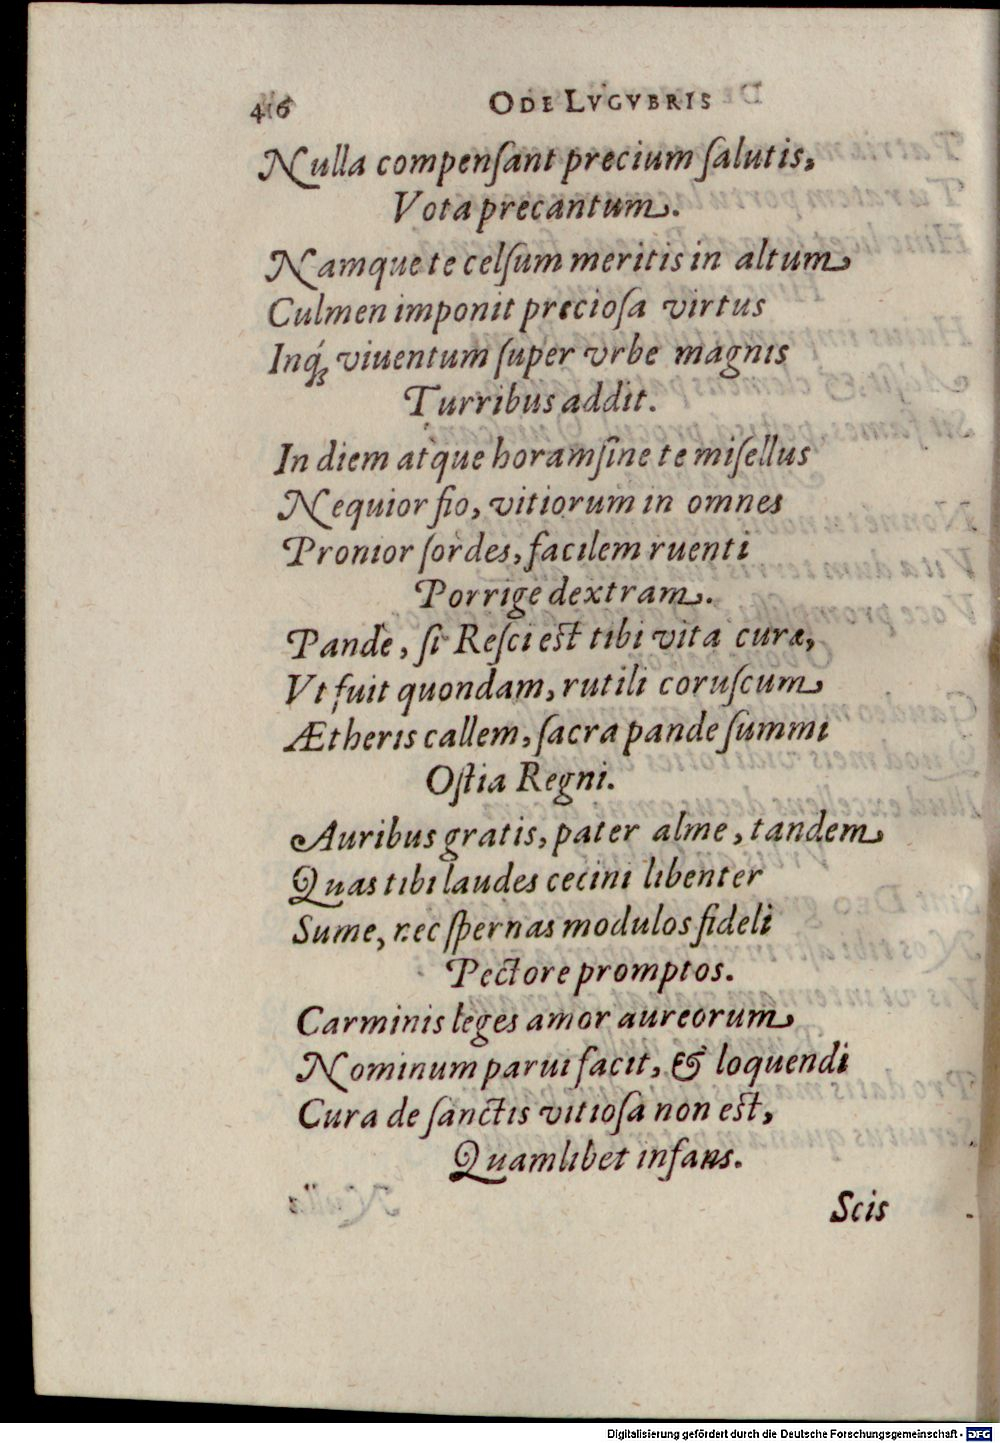 416 ODE LVGVBRIS
Nulla compenſant precium ſalutis,
Vota precantum.
Namque te celſum meritis in altum
Culmen imponit precioſa virtus
Inq́ꝫ viuentum ſuper vrbe magnis
Turribus addit.
In diem atque horam ſine te miſellus
Nequior fio, vitiorum in omnes
Pronior ſordes, facilem ruenti
Porrige dextram.
Pande, ſi Reſci eſt tibi vita curæ,
Vt fuit quondam, rutili coruſcum
Ætheris callem, ſacra pande ſummi
Oſtia Regni.
Auribus gratis, pater alme, tandem
Quas tibi laudes cecini libenter
Sume, nec ſpernas modulos fideli
Pectore promptos.
Carminis leges amor aureorum
Nominum parui facit, & loquendi
Cura de ſanctis vitioſa non eſt,
Quamlibet infans.
Scis
Digitalisierung gefördert durch die Deutsche Forschungsgemeinschaft - DFG